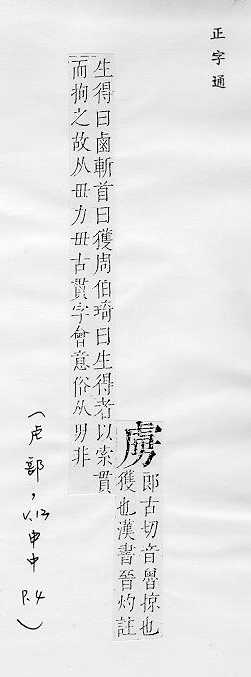 正字通
虜
郎古切音魯掠也
獲也漢書晉灼註
生得曰鹵斬首曰獲周伯琦曰生得者以索貫
而拘之故从毌力毌古貫字會意俗从男非
(虍部，V.12申中 P.4)